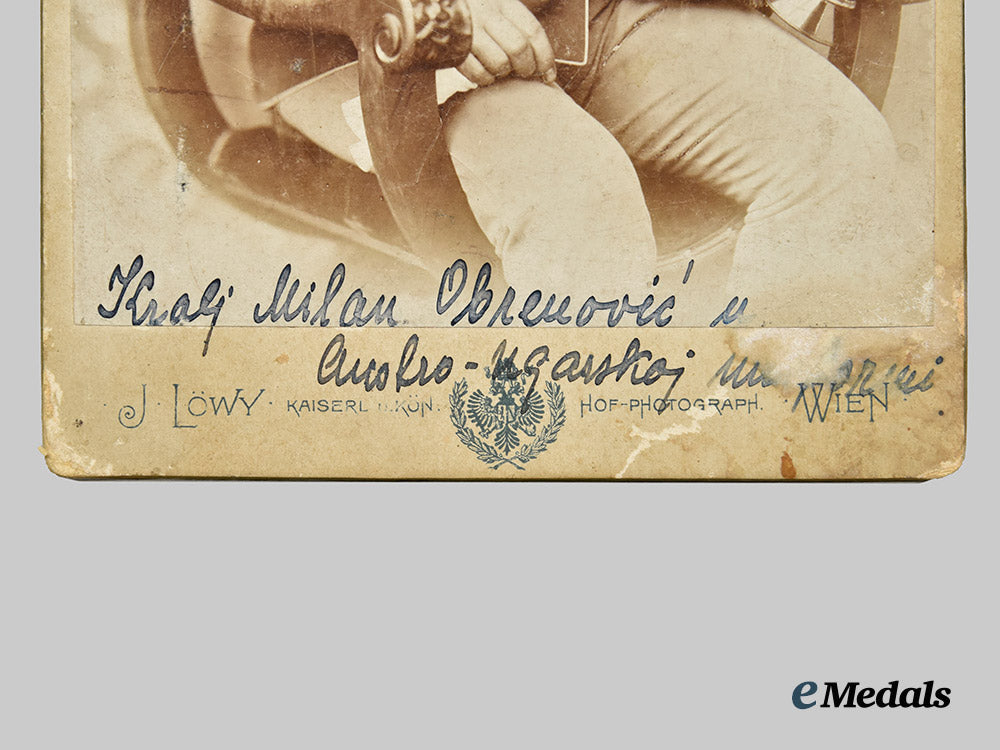 Kralj Milan Obrenović u
Austro-Ugarskoj
J. LÖWY. KAISERL. U. KÖN. HOF-PHOTOGRAPH. WIEN
eMedals